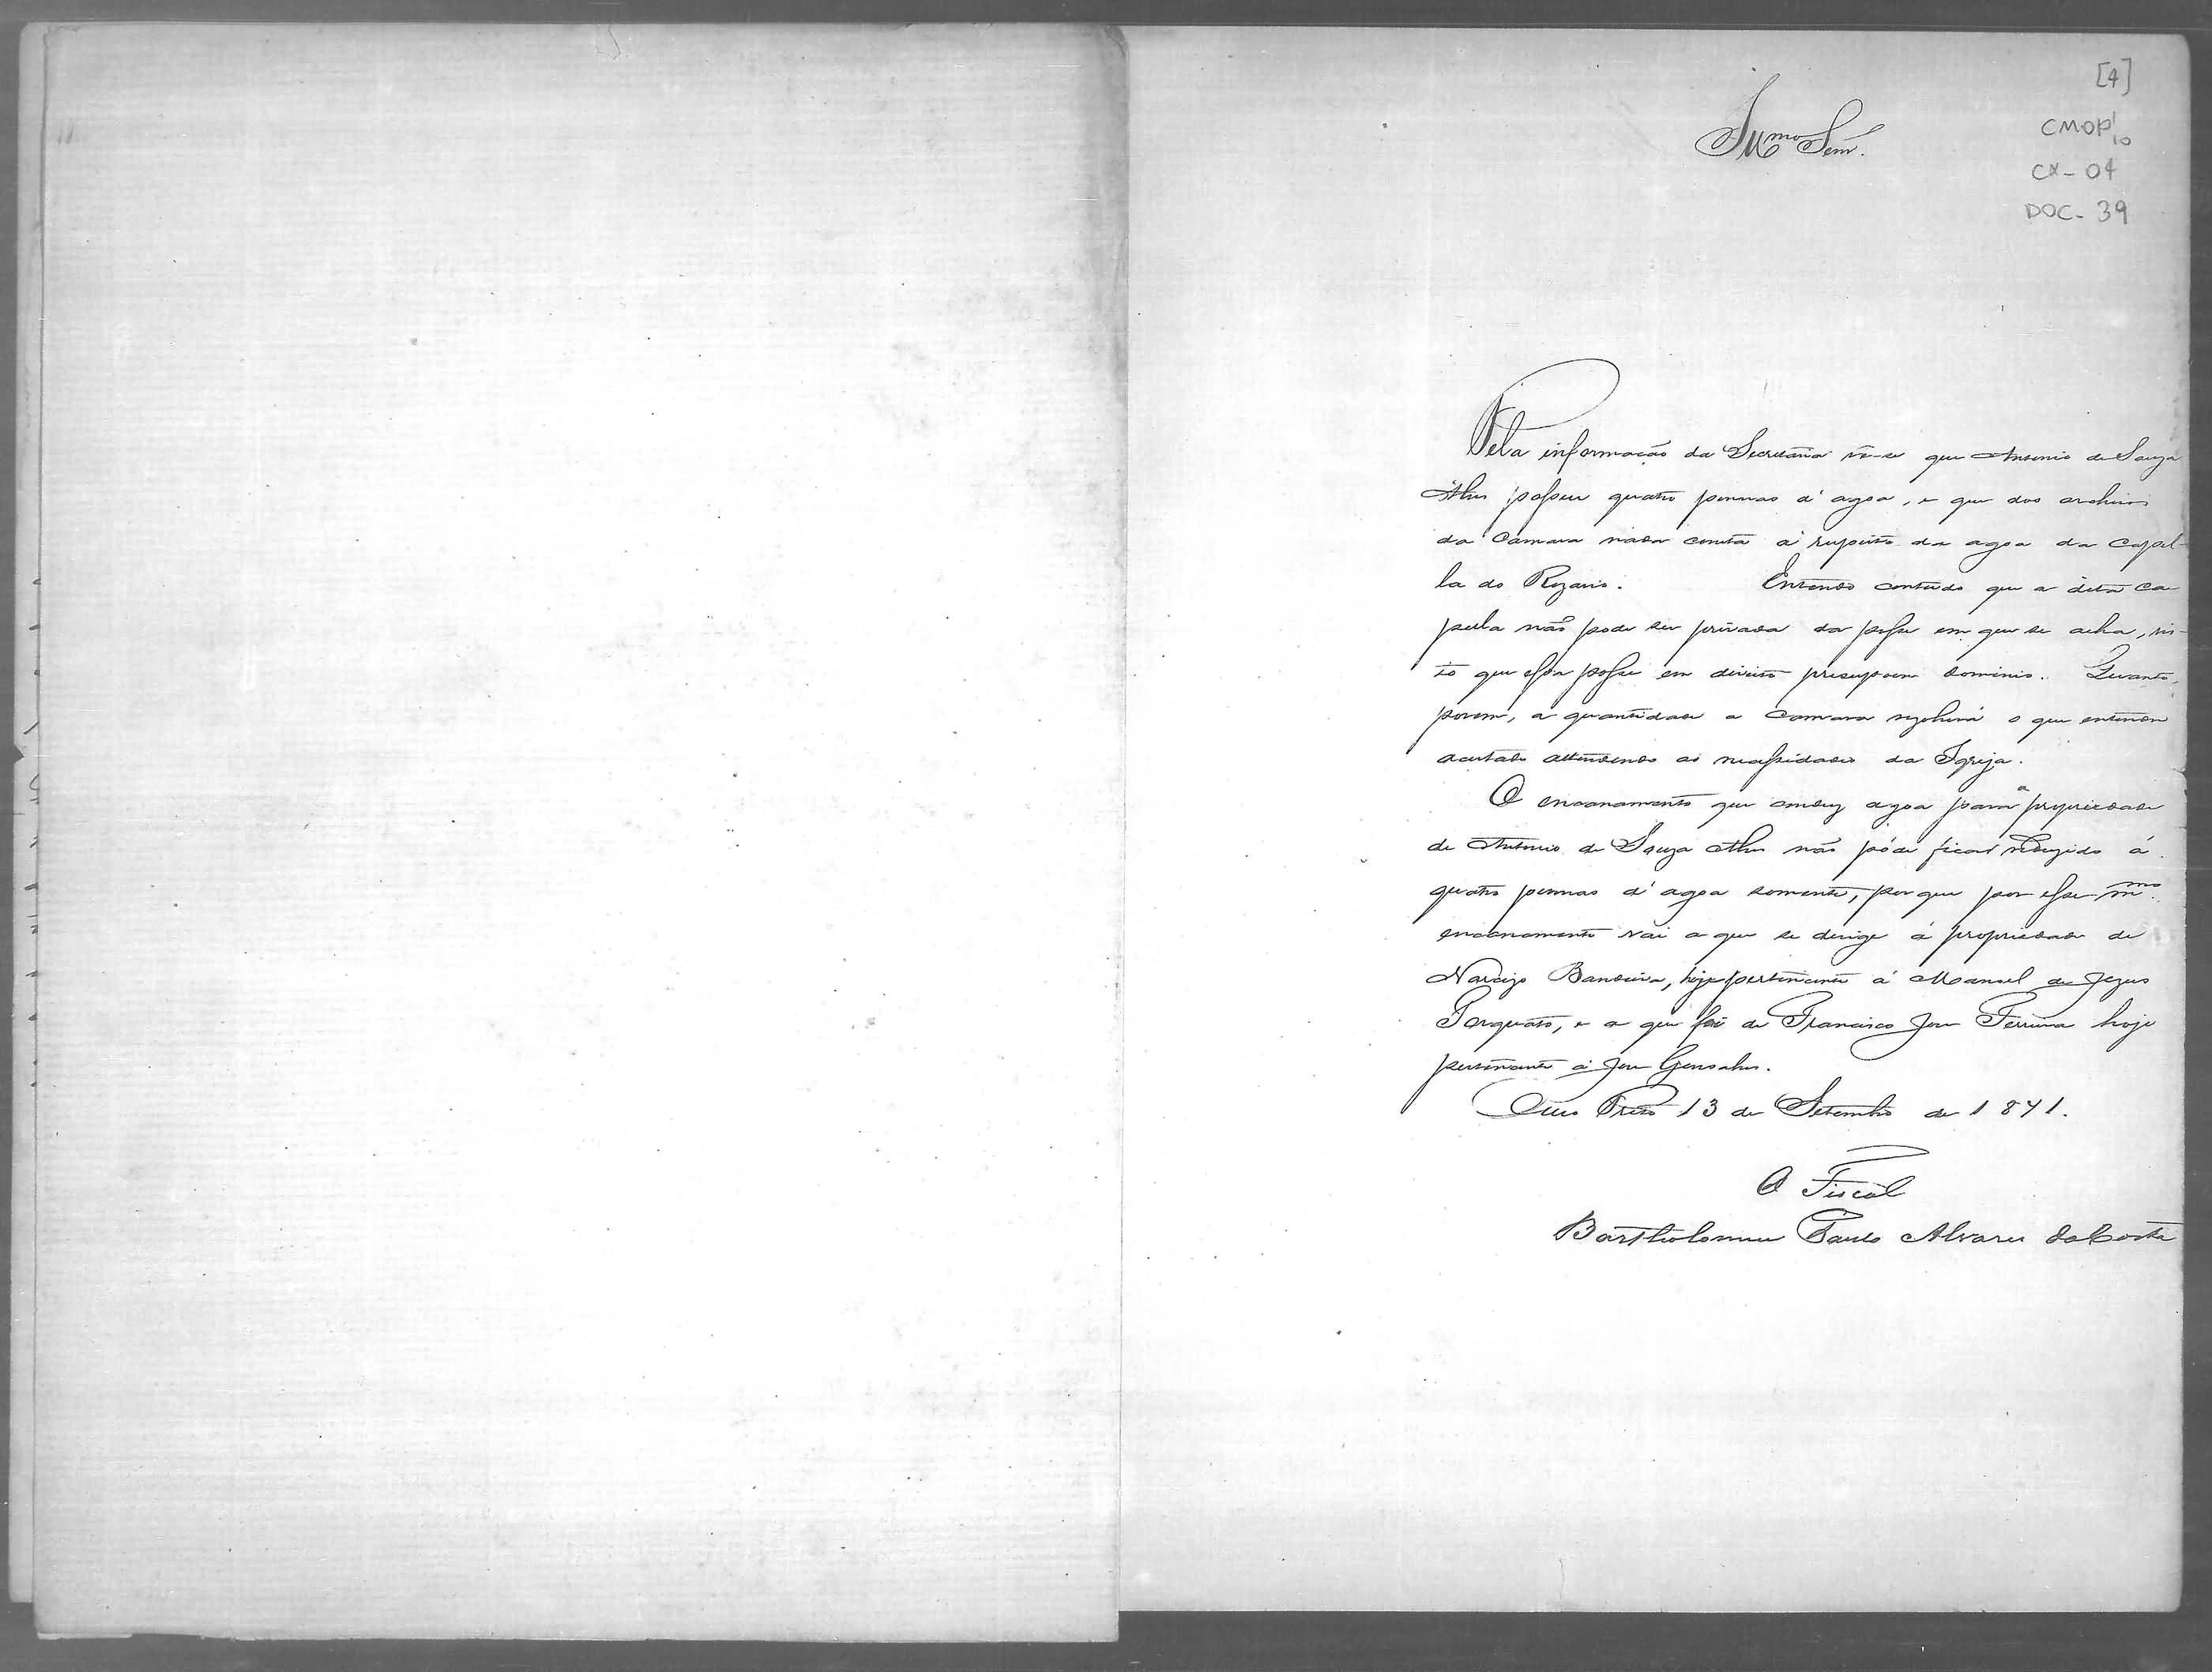 [4]
CMOP 1/10
CX-04
DOC-39
Illmo Senr.
Pela informação da Secretaria vê-se que Antonio de Souza
possue quatro pennas d'agoa, e que dos archivos
da Camara nada consta á respeito da agoa da Capel-
la do Rozario. Entendo contudo que a dita Ca
pella não pode ser privada da posse em que se acha, vis-
to que essa posse em direito presuppoem dominio. Quanto,
porem, a quantidade a Camara rezolverá o que entender
acertado attendendo as necessidades da Igreja.
O encanamento que conduz agoa para a propriedade
de Antonio de Souza não póde ficar reduzido á
quatro pennas d'agoa somente, por que por esse mmo.
encanamento vai a que se derige á propriedade de
Narcizo Bandeira, hoje pertencente á Manoel de Jezus
Torquato, e a que foi de Francisco Jose Ferreira hoje
pertencente á Jose Gonsalves.
Ouro Preto 13 de Setembro de 1871.
O Fiscal
Bartholomeu Paulo Alvares da Costa